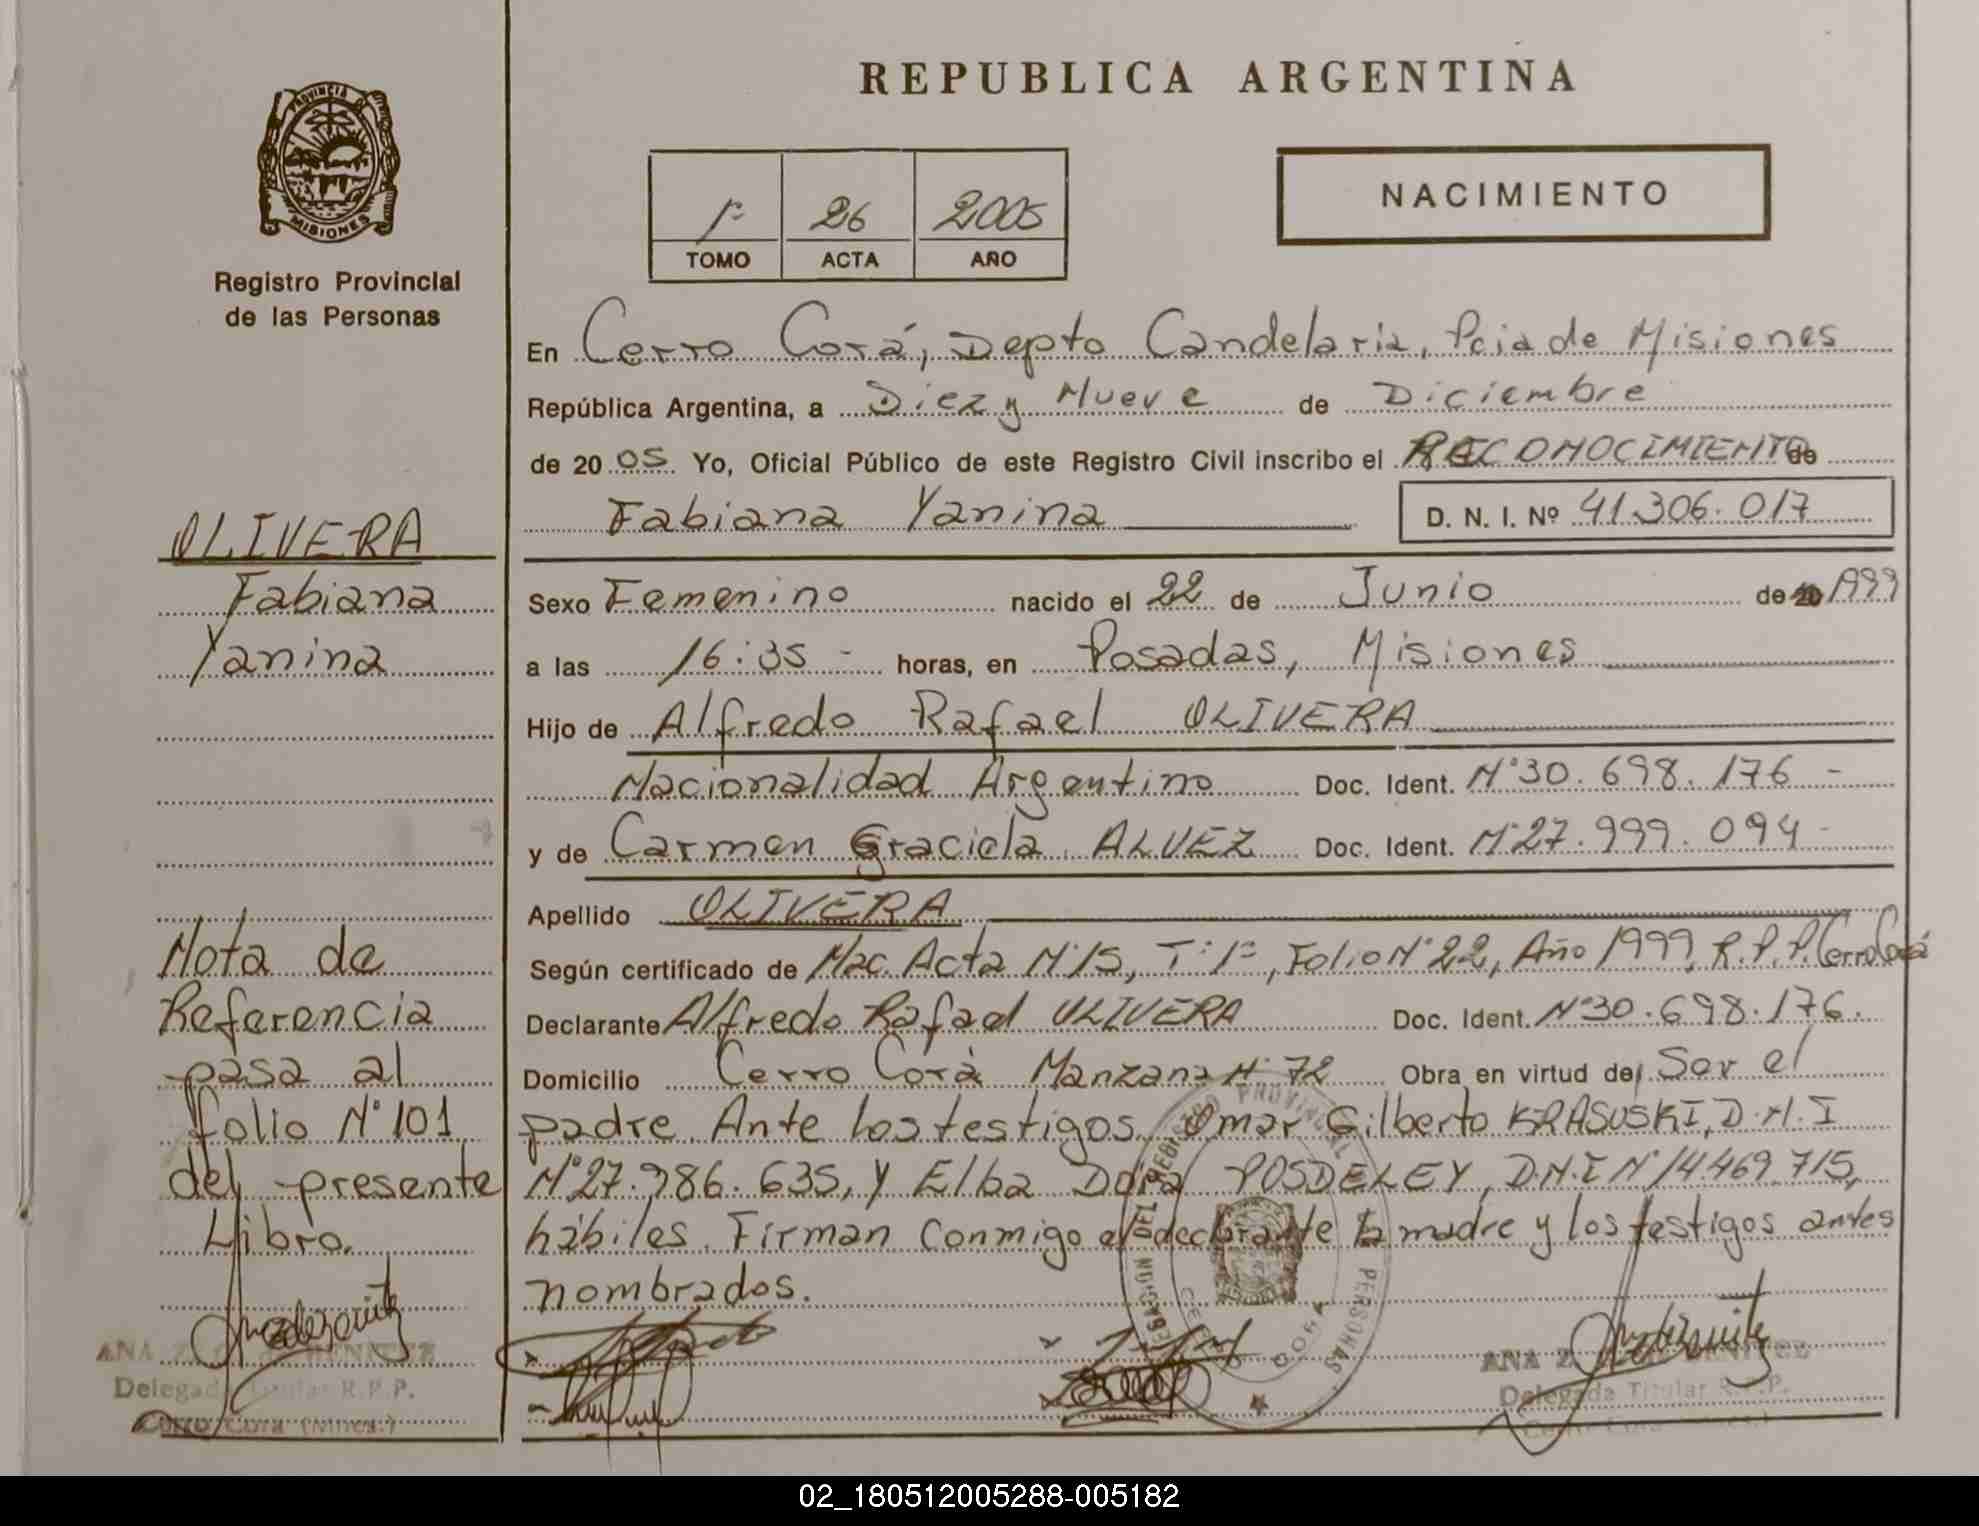 REPUBLICA ARGENTINA
PROVINCIA DE
MISIONES
Registro Provincial
de las Personas
1º 26 2005
TOMO ACTA AÑO
NACIMIENTO
En Cerro Corá, Depto Candelaria, Pcia de Misiones
República Argentina, a Diez y Nueve de Diciembre
de 2005 Yo, Oficial Público de este Registro Civil inscribo el RECONOCIMIENTO de
Fabiana Yanina D. N. I. Nº 41.306.017
Sexo Femenino nacido el 22 de Junio de 1999
a las 16:35 - horas, en Posadas, Misiones
Hijo de Alfredo Rafael OLIVERA
Nacionalidad Argentino Doc. Ident. N°30.698.176 -
y de Carmen Graciela ALVEZ Doc. Ident. N°27.999.094 -
Apellido OLIVERA
Según certificado de Nac. Acta N°15, T:1º, Folio N°22, Año 1999, R.P.P. Cerro Corá
Declarante Alfredo Rafael OLIVERA Doc. Ident. N°30.698.176.
Domicilio Cerro Corá Manzana N°72 Obra en virtud de Ser el
padre. Ante los testigos Omar Gilberto KRASUSKI, D.N.I
N°27.986.635, y Elba Dora POSDELEY, D.N.I N°14.469.715,
hábiles. Firman conmigo el declarante la madre y los testigos antes
nombrados.
OLIVERA
Fabiana
Yanina
Nota de
Referencia
pasa al
folio N°101
del presente
Libro.
ANA Z. BENITEZ
Delegada Titular R.P.P.
Cerro Cora (Mnes.)
DELEGACION DEL REGISTRO PROVINCIAL PERSONAS
CERRO CORA
ANA Z. BENITEZ
Delegada Titular R.P.P.
02_180512005288-005182